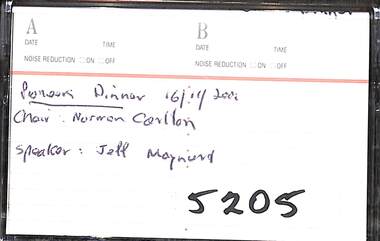 A B
DATE TIME DATE TIME
NOISE REDUCTION □ON □OFF NOISE REDUCTION □ON □OFF
Pioneers Dinner 16/11/2001
Chair : Norman Carlton
Speaker : Jeff Maynard
5205